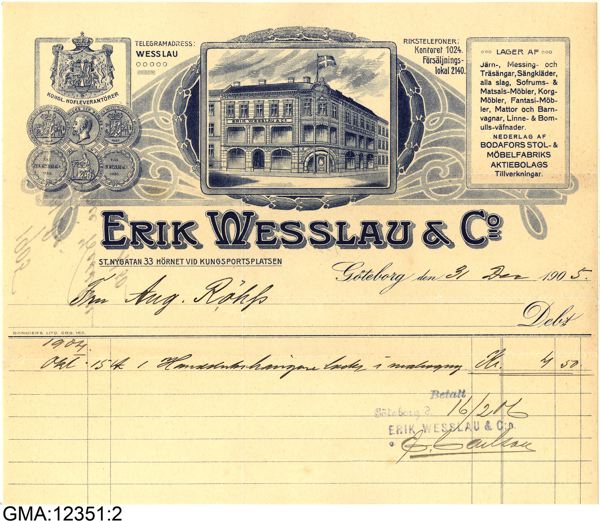 TELEGRAMADRESS:
WESSLAU
KONGL. HOFLEVERANTÖRER
RIKSTELEFONER:
Kontoret 1024.
Försäljnings-
lokal 2140.
LAGER AF
Järn-, Messing- och
Träsängar, Sängkläder,
alla slag, Sofrums- &
Matsals-Möbler, Korg-
Möbler, Fantasi-Möb-
ler, Mattor och Barn-
vagnar, Linne- & Bom-
ulls-väfnader.
NEDERLAG AF
BODAFORS STOL- &
MÖBELFABRIKS
AKTIEBOLAGS
Tillverkningar.
ERIK WESSLAU & Co
ERIK WESSLAU & Co
ST. NYGATAN 33 HÖRNET VID KUNGSPORTSPLATSEN
Göteborg den 31 Dec 1905.
Fru Aug. Röhss
Debt
1904
Okt. 15 1 i mahogny Kr. 4 50.
Betalt
Göteborg d. 16/2 06
ERIK WESSLAU & Co.
Carlson
GMA:12351:2